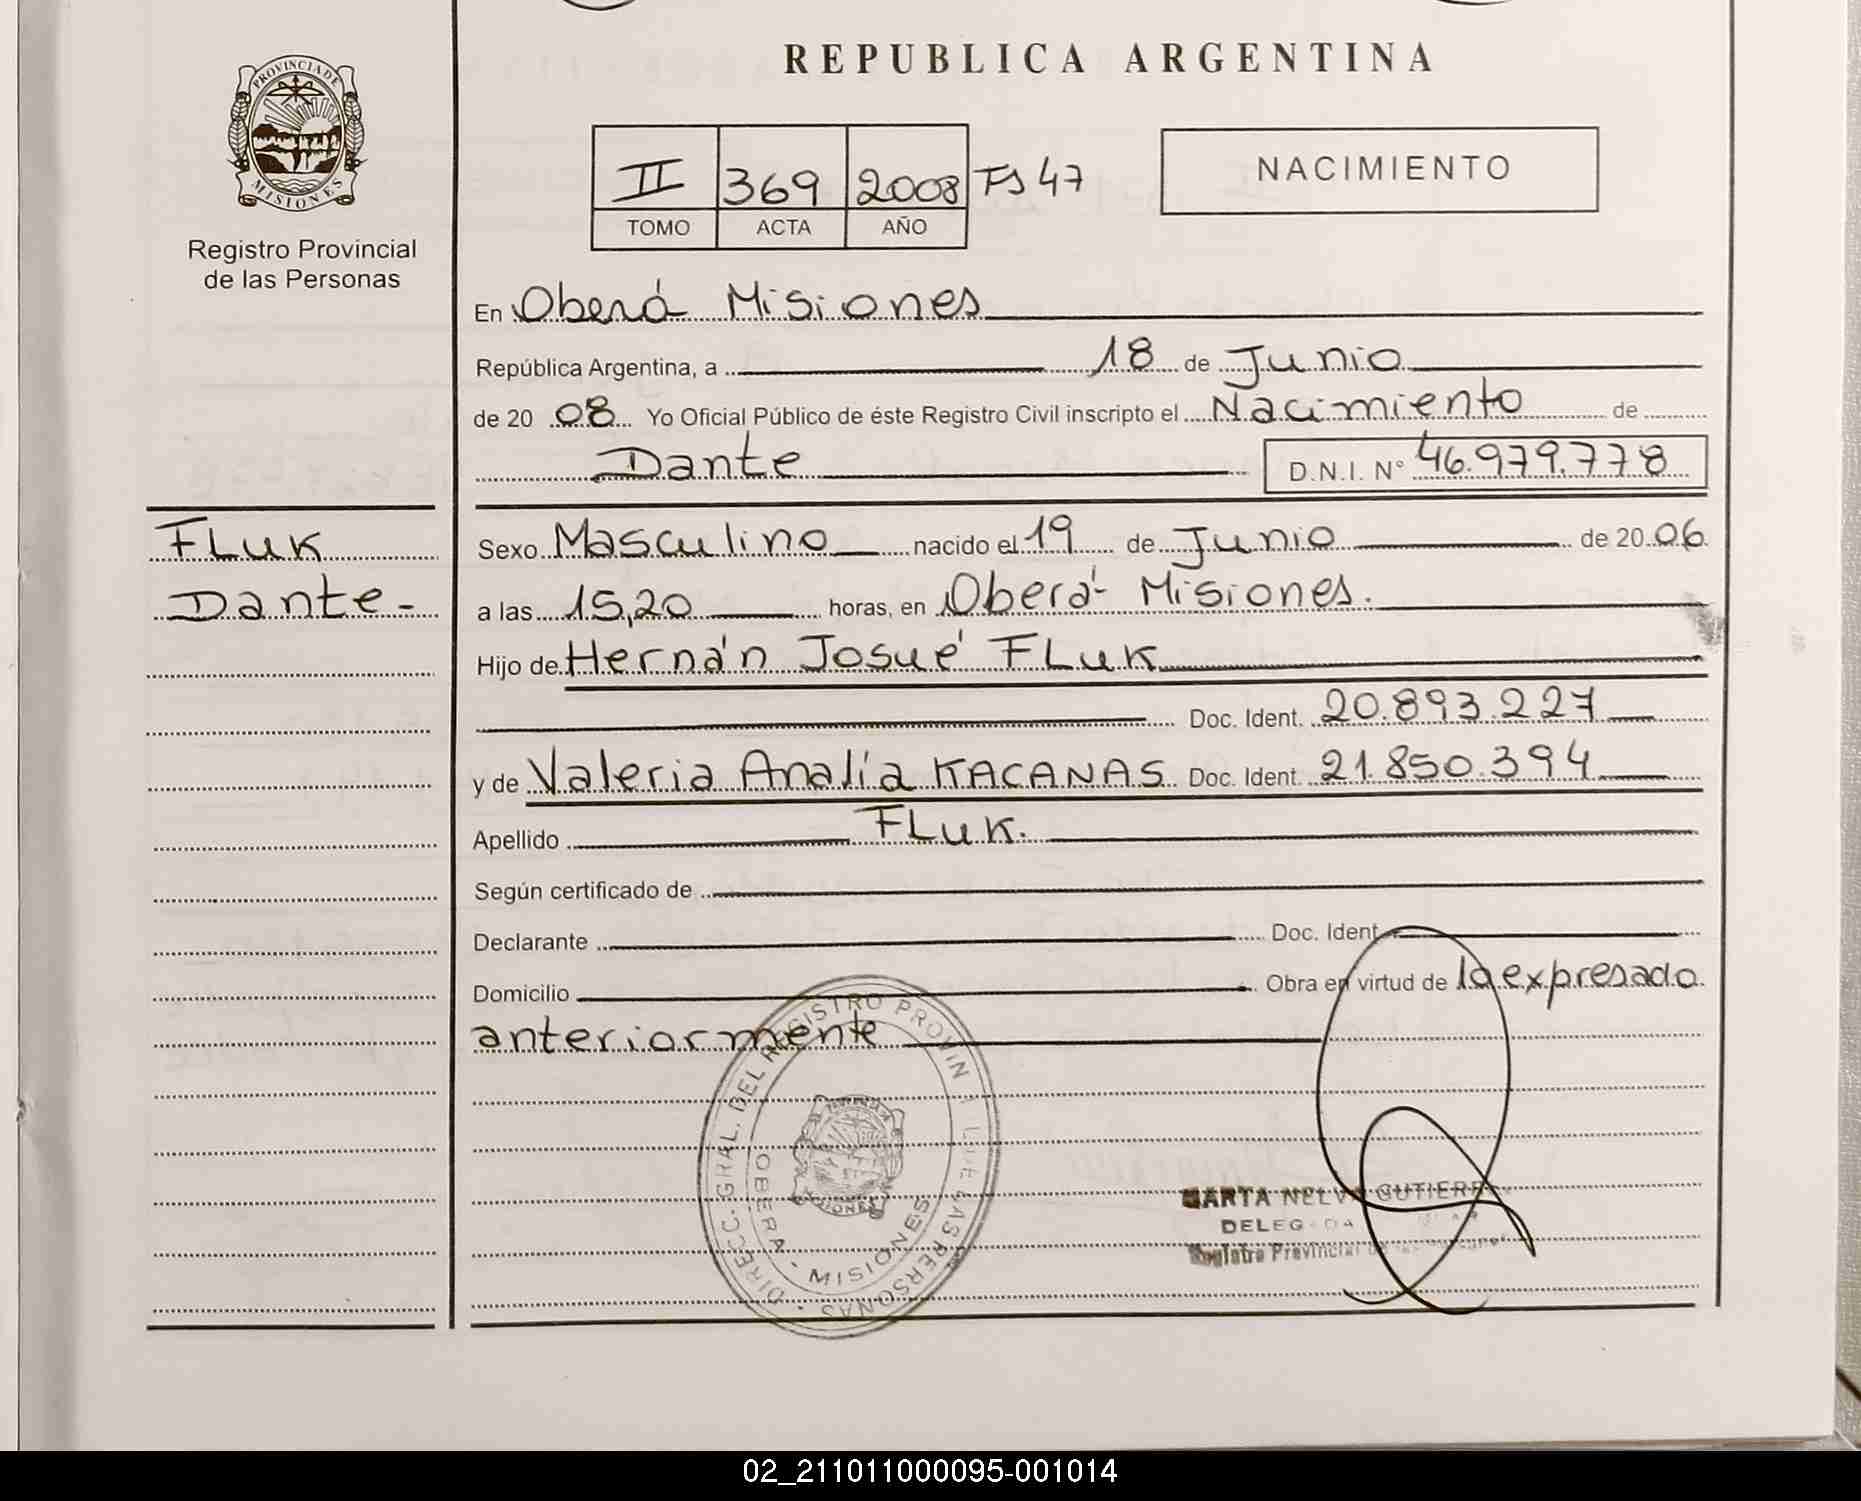 REPUBLICA ARGENTINA
PROVINCIA DE
MISIONES
Registro Provincial
de las Personas
II 369 2008 FS 47
TOMO ACTA AÑO
NACIMIENTO
En Oberá Misiones
República Argentina, a 18 de Junio
de 20 08 Yo Oficial Público de éste Registro Civil inscripto el Nacimiento de
Dante D.N.I. N° 46.979.778
FLUK
Dante-
Sexo Masculino nacido el 19 de Junio de 20 06
a las 15,20 horas, en Oberá- Misiones.
Hijo de Hernán Josué FLUK
Doc. Ident. 20.893.227
y de Valeria Analía KACANAS Doc. Ident. 21.850.394
Apellido FLUK.
Según certificado de
Declarante Doc. Ident.
Domicilio Obra en virtud de lo expresado
anteriormente
DIRECC. GRAL. DEL REGISTRO PROVIN LAS PERSONAS
OBERA - MISIONES
MARTA NELV GUTIERR
Registro Provincial
02_211011000095-001014